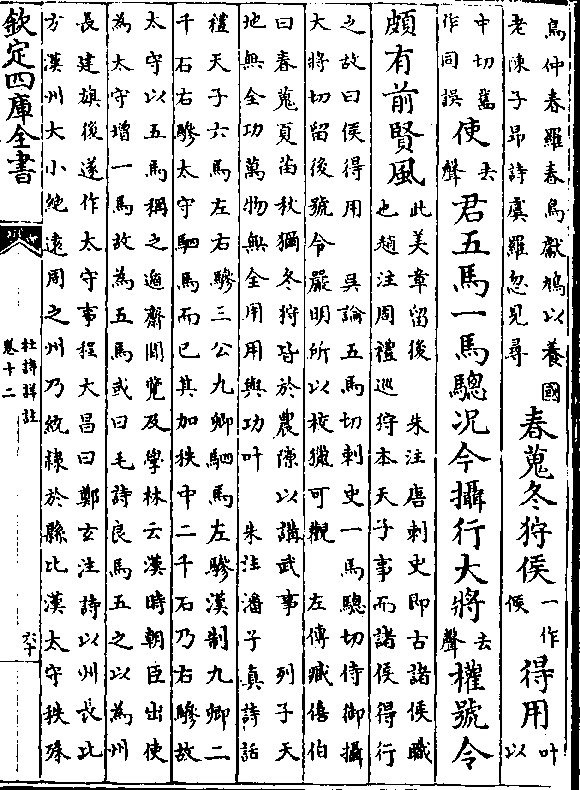 鳥仲春羅春鳥獻鳩以養國
老陳子昻詩虞羅忽見尋
春蒐冬狩侯一作候得用叶以
中切舊作同誤使去聲君五馬一馬驄况今攝行大將去聲權號令
頗有前賢風此美章留後　朱注唐刺史即古諸侯職
也趙注周禮巡狩本天子事而諸侯得行
之故曰侯得用　吳論五馬切刺史一馬驄切侍御攝
大將切留後號令嚴明所以校獵可觀　左傳臧僖伯
曰春蒐夏苗秋獮冬狩皆於農隙以講武事　列子天
地無全功萬物無全用用與功叶　朱注潘子真詩話
禮天子六馬左右驂三公九卿駟馬左驂漢制九卿二
千石右驂太守駟馬而已其加秩中二千石乃右驂故
太守以五馬稱之遯齋閒覽及學林云漢時朝臣出使
為太守增一馬故為五馬或曰毛詩良馬五之以為州
長建旟後遂作太守事程大昌曰鄭玄注詩以州長比
方漢州大小絶逺周之州乃統隸於縣比漢太守秩殊
欽定四庫全書
杜詩詳註
卷十二